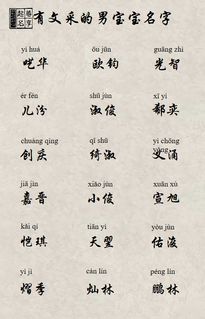 起名 善享
有文采的男宝宝名字
yì huá ōu jūn guāng zhì
呓华 欧钧 光智
ér fēn shū jùn xī yì
儿汾 淑俊 郗奕
chuàng qìng qǐ shū yì chōng yǒng
创庆 绮淑 义涌
jiā jìn xiǎo jùn xuān xù
嘉晋 小俊 宣旭
kǎi qí tiān yì yòu jùn
恺琪 天翌 佑浚
yì jì càn lín péng lín
熠季 灿林 鹏林